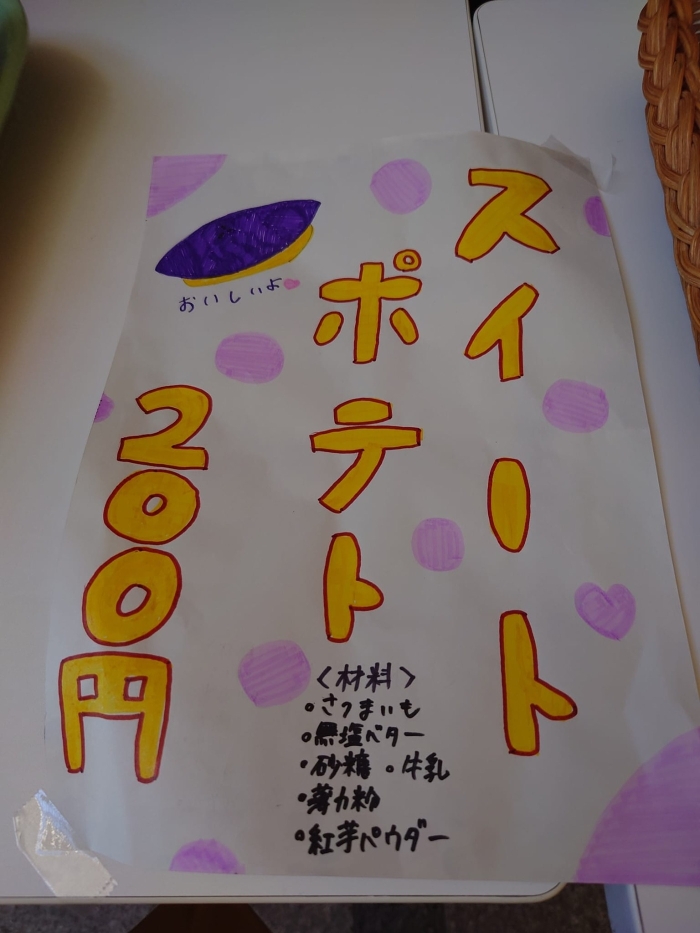 スイート
ポテト
200円
おいしいよ
〈材料〉
•さつまいも
•無塩バター
•砂糖 •牛乳
•薄力粉
•紅芋パウダー